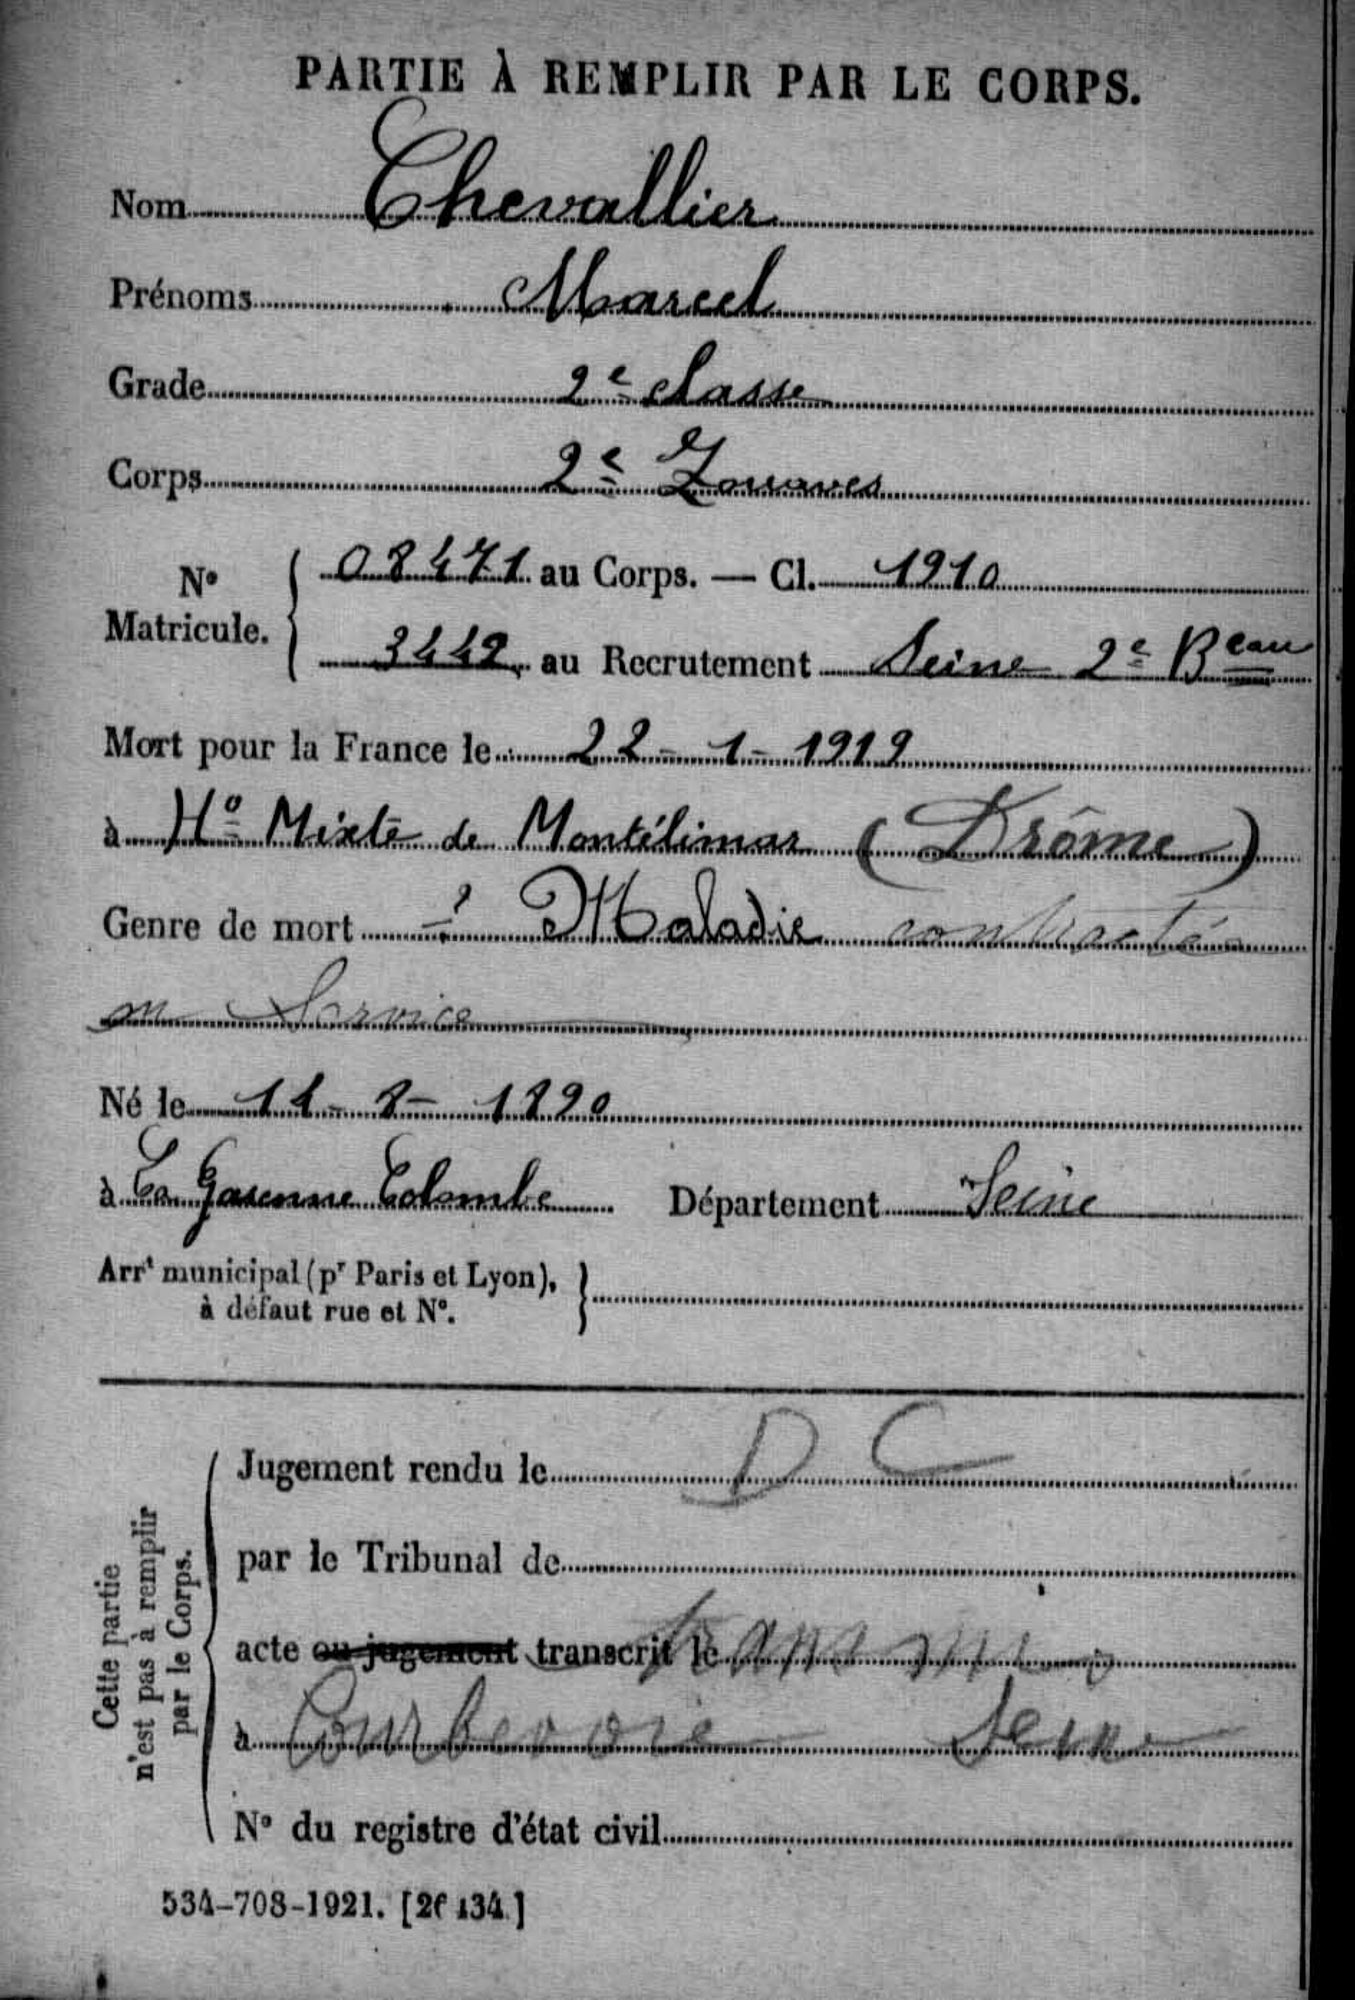 PARTIE À REMPLIR PAR LE CORPS.
Nom Chevallier
Prénoms Marcel
Grade 2e classe
Corps 2e Zouaves
No Matricule. { 08471 au Corps. — Cl. 1910
3442 au Recrutement Seine 2e Beau
Mort pour la France le 22-1-1919
à Ho Mixte de Montélimar (Drôme)
Genre de mort Maladie contractée
en Service
Né le 11-8-1890
à La Garenne Colombe Département Seine
Arrt municipal (pr Paris et Lyon),
à défaut rue et No.
Cette partie
n'est pas à remplir
par le Corps.
Jugement rendu le D C
par le Tribunal de
acte ou jugement transcrit le
à Courbevoie Seine
No du registre d'état civil
534-708-1921. [26134.]